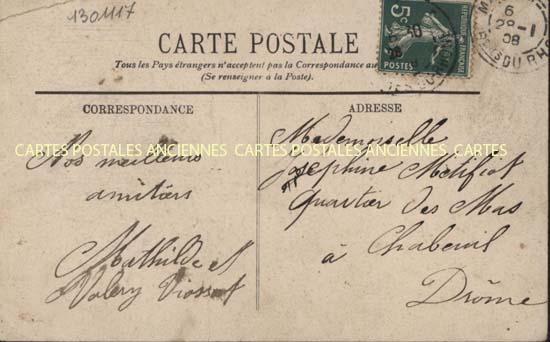 130117
CARTE POSTALE
Tous les Pays étrangers n'acceptent pas la Correspondance au
(Se renseigner à la Poste).
5c
POSTES
6
28 -1
08
DU RH
CORRESPONDANCE
ADRESSE
CARTES POSTALES ANCIENNES CARTES POSTALES ANCIENNES CARTES
Nos meilleures
amitiés
Mathilde
Valery Viossat
Mademoiselle
Josephine Métifiot
Quartier des Mas
à Chabeuil
Drôme